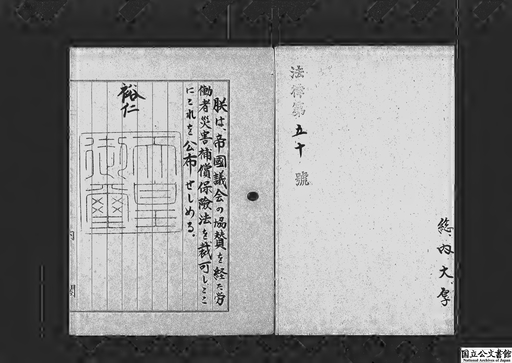 法律第五十號
総、内、大、厚
朕は、帝國議会の協賛を経た労
働者災害補償保險法を裁可し、ここ
にこれを公布せしめる。
裕仁
天皇
御璽
内閣
国立公文書館
National Archives of Japan